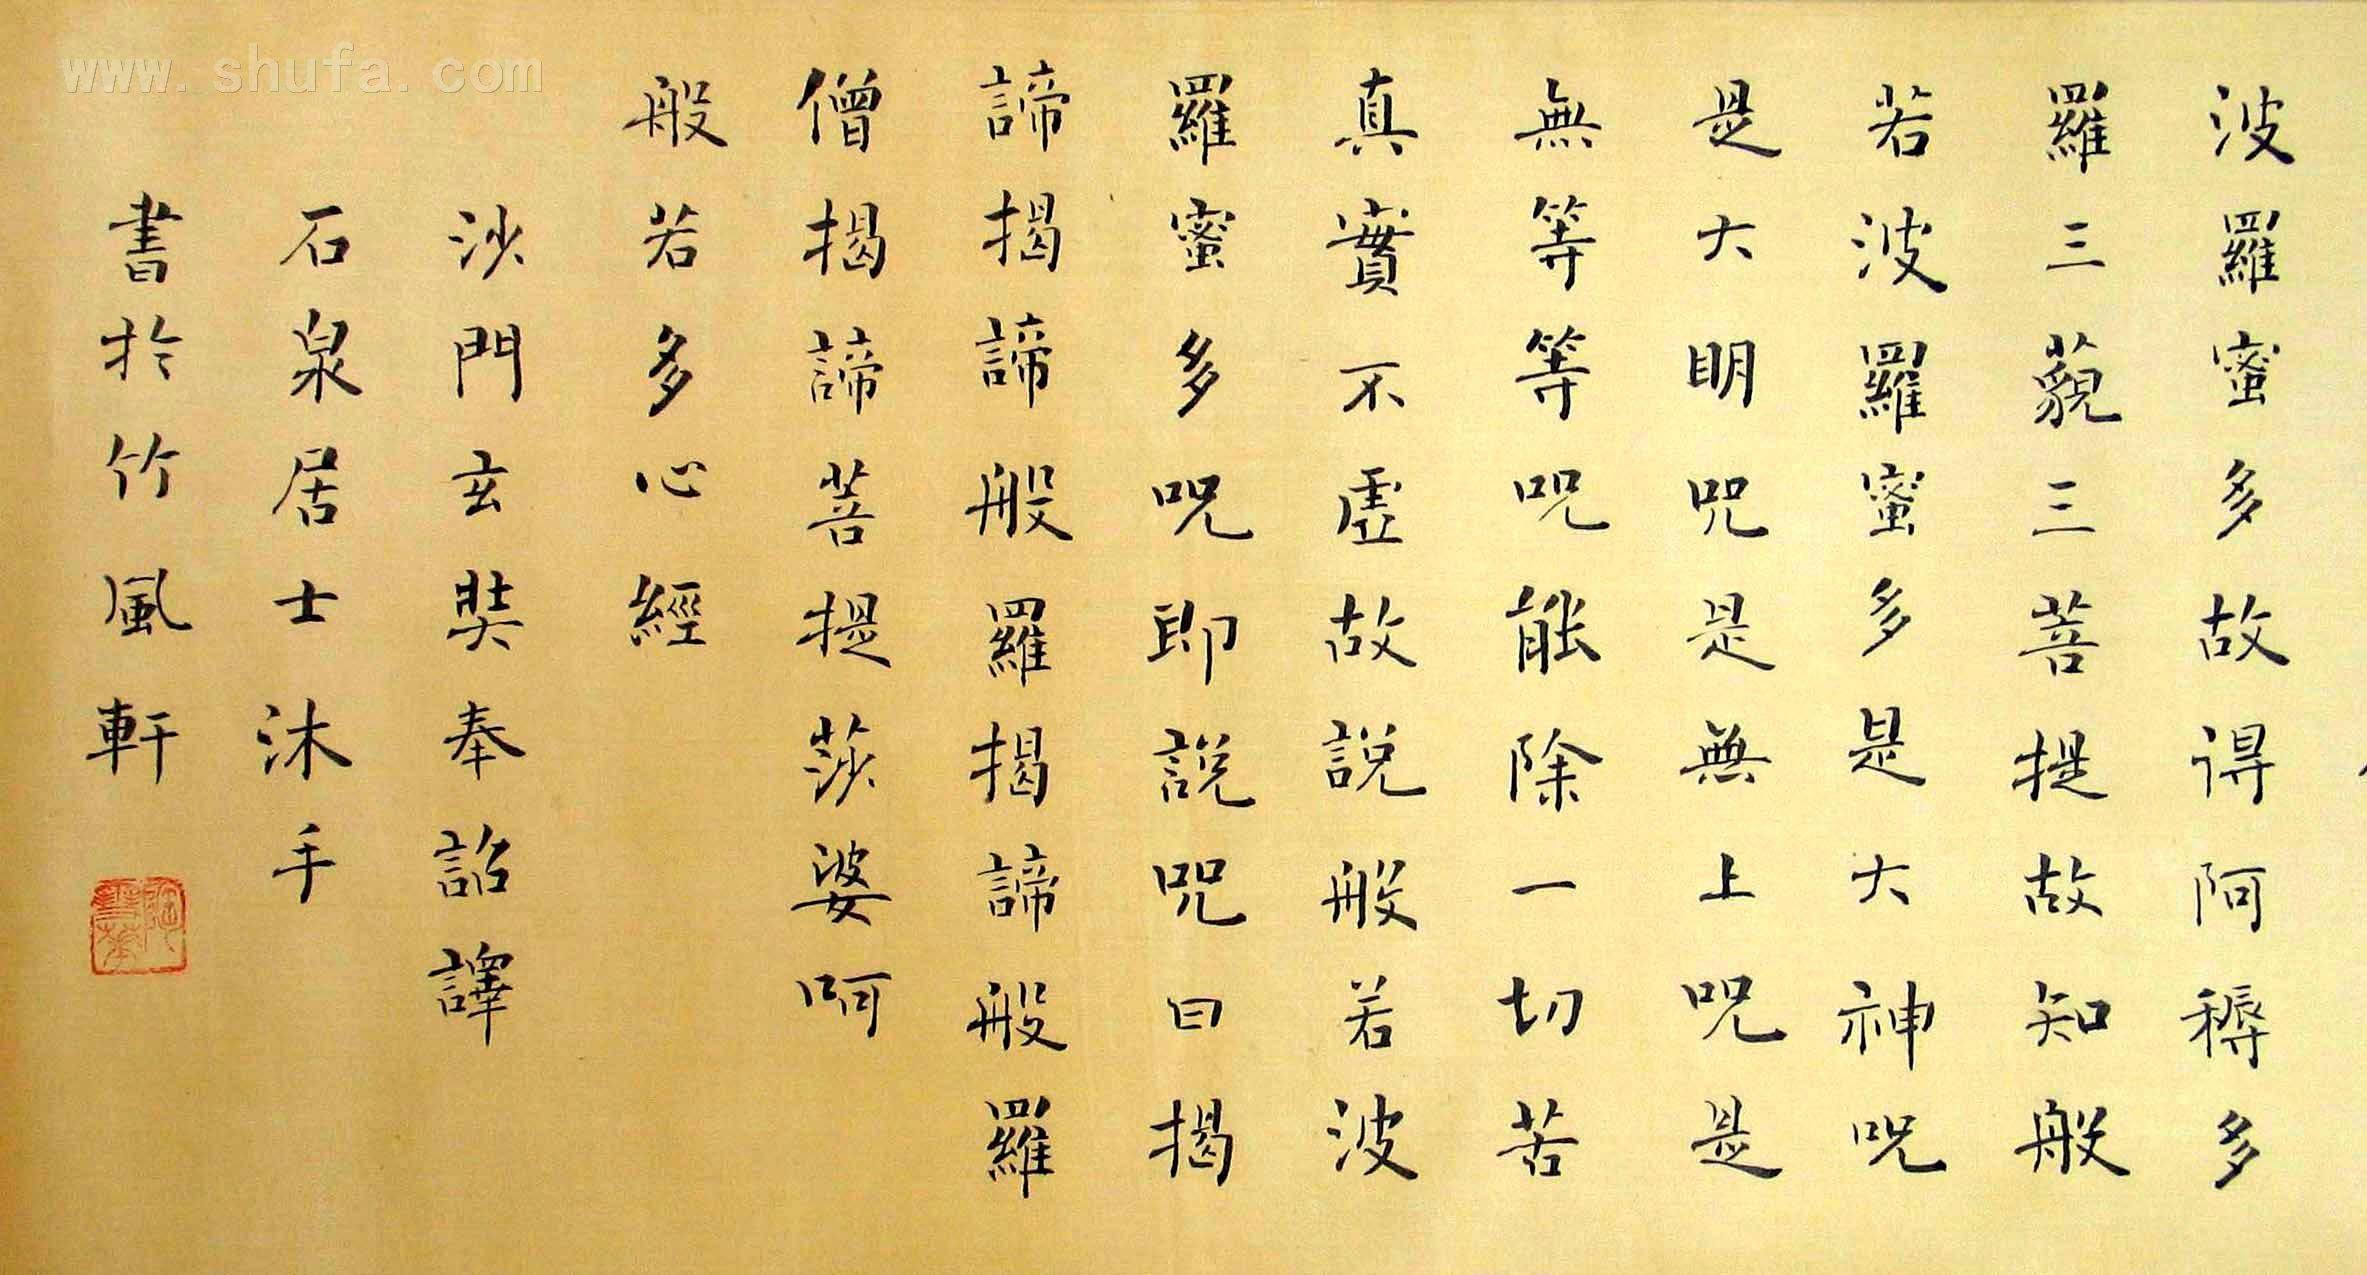 波羅蜜多故得阿耨多
羅三藐三菩提故知般
若波羅蜜多是大神咒
是大明咒是無上咒是
無等等咒能除一切苦
真實不虛故說般若波
羅蜜多咒即說咒曰揭
諦揭諦般羅揭諦般羅
僧揭諦菩提莎婆呵
般若多心經
沙門玄奘奉詔譯
石泉居士沐手
書於竹風軒
www.shufa.com